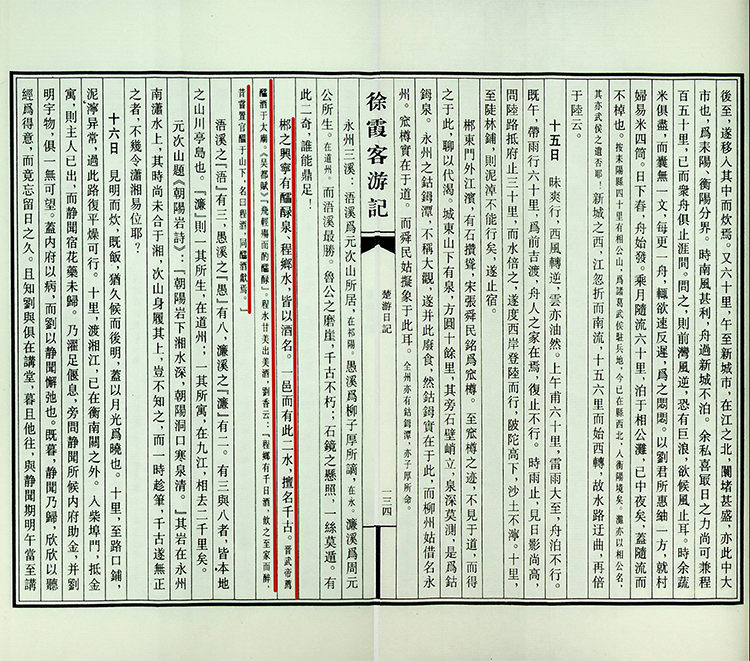 後至，遂移入其中而炊焉。又六十里，午至新城市，在江之北，闤堵甚盛，亦此中大
市也，爲耒陽、衡陽分界。時南風甚利，舟過新城不泊。余私喜冣日之力尚可兼程
百五十里，已而衆舟俱止涯間。問之，則前灣風逆，恐有巨浪，欲候風止耳。時余蔬
米俱盡，而囊無一文，每更一舟，輒欲速反遲，爲之悶悶。以劉君所惠紬一方，就村
婦易米四筒。日下舂，舟始發。乘月隨流六十里，泊于相公灘，已中夜矣。蓋隨流而
不棹也。按耒陽縣四十里有相公山，爲諸葛武侯駐兵地，今已在縣西北，入衡陽境矣。灘亦以相公名，
其亦武侯之遺否耶！新城之西，江忽折而南流，十五六里而始西轉，故水路迂曲，再倍
于陸云。
十五日 昧爽行，西風轉逆，雲亦油然。上午甫六十里，雷雨大至，舟泊不行。
既午，帶雨行六十里，爲前吉渡，舟人之家在焉，復止不行。時雨止，見日影尚高，
問陸路抵府止三十里，而水倍之，遂度西岸登陸而行，陂陀高下，沙土不濘。十里，
至陡林鋪，則泥淖不能行矣，遂止宿。
郴東門外江濱，有石攢聳，宋張舜民銘爲窊樽。至窊樽之迹，不見于道，而得
之于此，聊以代渴。城東山下有泉，方圓十餘里，其旁石壁峭立，泉深莫測，是爲鈷
鉧泉。永州之鈷鉧潭，不稱大觀，遂并此廢食，然鈷鉧實在于此，而柳州姑借名永
州。窊樽實在于道。而舜民姑擬象于此耳。全州亦有鈷鉧潭，亦子厚所命。
徐霞客游記
楚游日記
一三四
永州三溪：浯溪爲元次山所居，在祁陽。愚溪爲柳子厚所謫，在永。濂溪爲周元
公所生。在道州。而浯溪最勝。魯公之磨崖，千古不朽；石鏡之懸照，一絲莫遁。有
此二奇，誰能鼎足！
郴之興寧有醽醁泉、程鄉水，皆以酒名。一邑而有此二水，擅名千古。晋武帝薦
醽酒于太廟。《吴都賦》：「飛輕觴而酌醽醁。」程水甘美出美酒，劉香云：「程鄉有千日酒，飲之至家而醉，
昔嘗置官醖于山下，名曰程酒，同醽酒獻焉。」
浯溪之「浯」有三，愚溪之「愚」有八，濂溪之「濂」有二。有三與八者，皆本地
之山川亭島也。「濂」則一其所生，在道州；一其所寓，在九江，相去二千里矣。
元次山題《朝陽岩詩》：「朝陽岩下湘水深，朝陽洞口寒泉清。」其岩在永州
南瀟水上，其時尚未合于湘，次山身履其上，豈不知之，而一時趁筆，千古遂無正
之者，不幾令瀟湘易位耶？
十六日 見明而炊，既飯，猶久候而後明，蓋以月光爲曉也。十里，至路口鋪，
泥濘异常，過此路復平燥可行。十里，渡湘江，已在衡南關之外。入柴埠門，抵金
寓，則主人已出，而静聞宿花藥未歸。乃濯足偃息，旁問静聞所候内府助金，并劉
明宇物，俱一無可望。蓋内府以病，而劉以静聞懈弛也。既暮，静聞乃歸，欣欣以聽
經爲得意，而竟忘留日之久。且知劉與俱在講堂，暮且他往，與静聞期明午當至講